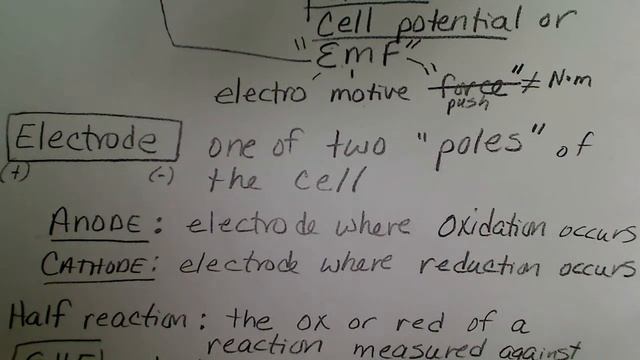 Cell potential or
"EmF"
electro motive "force" ≠ N·m
push
Electrode one of two "poles" of
(+) (-) the cell
ANODE: electrode where Oxidation occurs
CATHODE: electrode where reduction occurs
Half reaction: the ox or red of a
reaction measured against